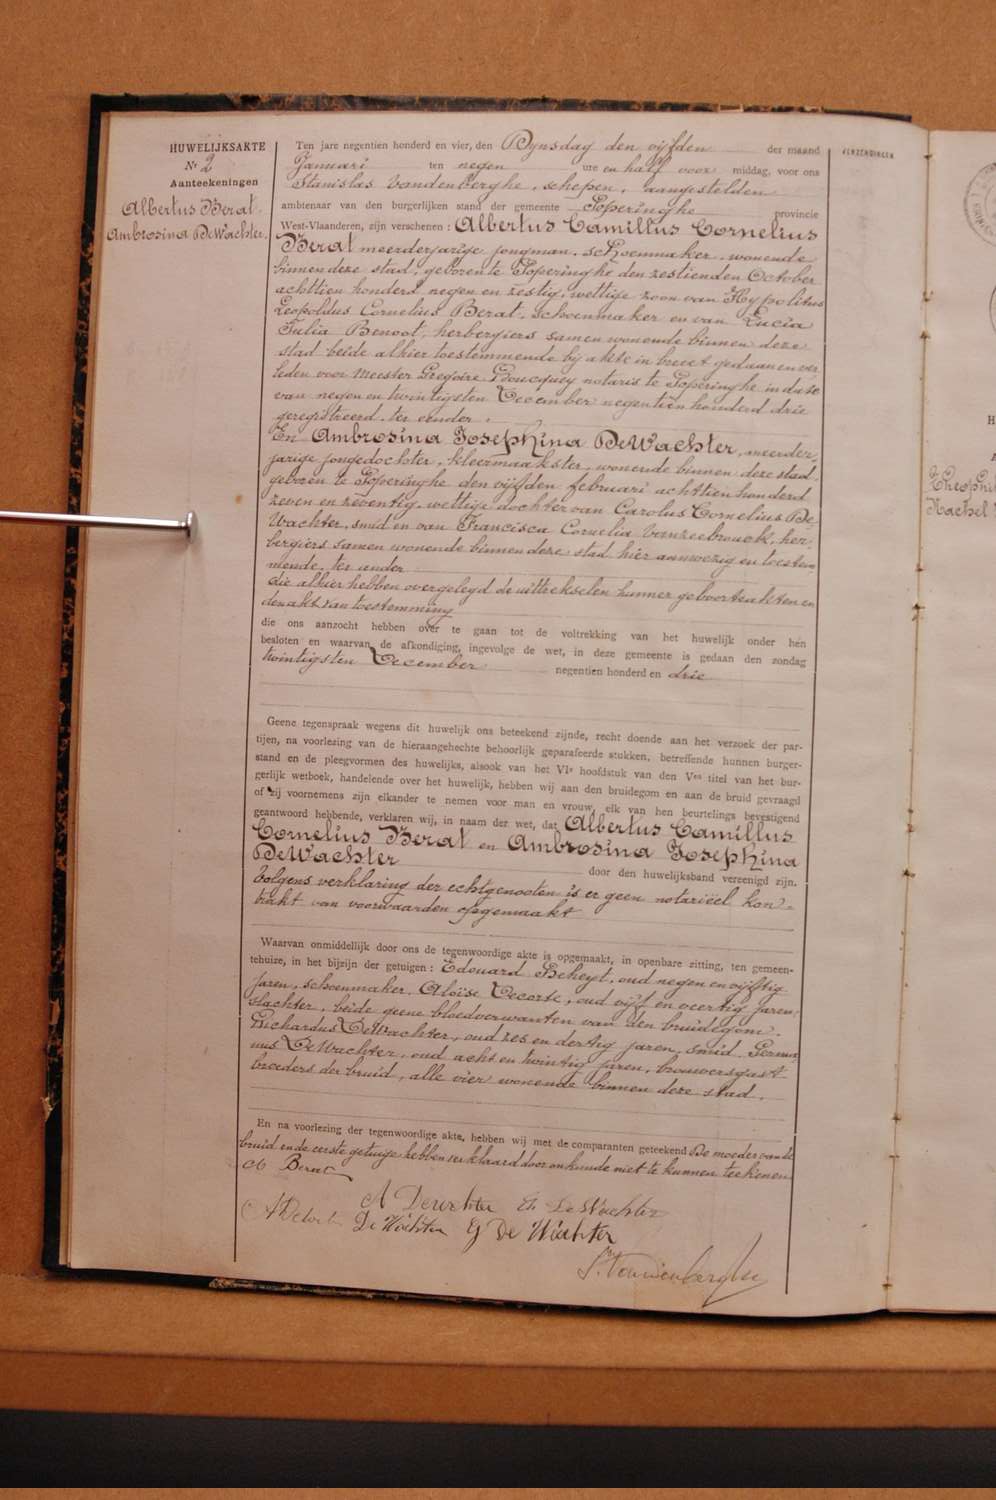 HUWELIJKSAKTE
Nr 2
Aanteekeningen
Albertus Berat.
Ambrosina DeWachter.
Ten jare negentien honderd en vier, den Dynsdag den vijfden der maand
Januari ten negen ure en half voor middag, voor ons
Stanislas Vandenberghe, schepen, aangestelden
ambtenaar van den burgerlijken stand der gemeente Poperinghe provincie
West-Vlaanderen, zijn verschenen : Albertus Camillus Cornelius
Berat meerderjarige jongman, schoenmaker, wonende
binnen deze stad, geboren te Poperinghe den zestienden October
achttien honderd negen en zestig, wettige zoon van Hypolitus
Leopoldus Cornelius Berat, schoenmaker en van Lucia
Julia Benoot, herbergiers samen wonende binnen deze
stad beide alhier toestemmende bij akte in brevet gedaan en ver
leden voor Meester Gregoire Boucquey notaris te Poperinghe in date
van negen en twintigsten December negentien honderd drie
geregistreerd. ter eender.
En Ambrosina Josephina DeWachter, meerder,
jarige jongedochter, kleermaakster, wonende binnen deze stad,
geboren te Poperinghe den vijfden februari achttien honderd
zeven en zeventig, wettige dochter van Carolus Cornelius De
Wachter, smid en van Francisca Cornelia Vanzeebrouck, her,
bergiers samen wonende binnen deze stad hier aanwezig en toestem
mende, ter ander
die alhier hebben overgelegd de uittrekselen hunner geboorteakten en
den akt van toestemming
die ons aanzocht hebben over te gaan tot de voltrekking van het huwelijk onder hen
besloten en waarvan de afkondiging, ingevolge de wet, in deze gemeente is gedaan den zondag
twintigsten December negentien honderd en drie
Geene tegenspraak wegens dit huwelijk ons beteekend zijnde, recht doende aan het verzoek der par-
tijen, na voorlezing van de hieraangehechte behoorlijk geparafeerde stukken, betreffende hunnen burger-
stand en de pleegvormen des huwelijks, alsook van het VIe hoofdstuk van den Ven titel van het bur-
gerlijk wetboek, handelende over het huwelijk, hebben wij aan den bruidegom en aan de bruid gevraagd
of zij voornemens zijn elkander te nemen voor man en vrouw, elk van hen beurtelings bevestigend
geantwoord hebbende, verklaren wij, in naam der wet, dat Albertus Camillus
Cornelius Berat en Ambrosina Josephina
DeWachter door den huwelijksband vereenigd zijn.
Volgens verklaring der echtgenooten is er geen notariëel kon-
trakt van voorwaarden opgemaakt
Waarvan onmiddellijk door ons de tegenwoordige akte is opgemaakt, in openbare zitting, ten gemeen-
tehuize, in het bijzijn der getuigen : Edouard Beheyt, oud negen en vijftig
jaren, schoenmaker, Aloïse Decorte, oud vijf en veertig jaren,
slachter, beide geene bloedverwanten van den bruidegom.
Richardus DeWachter, oud zes en dertig jaren, smid Germa
nus DeWachter, oud acht en twintig jaren, brouwersgast
broeders der bruid, alle vier wonende binnen deze stad.
En na voorlezing der tegenwoordige akte, hebben wij met de comparanten geteekend De moeder van de
bruid en de eerste getuige hebben verklaard door onkunde niet te kunnen teekenen
Berat
DeWachter
De Wachter
G De Wachter
St Vandenberghe
VERZENDINGEN